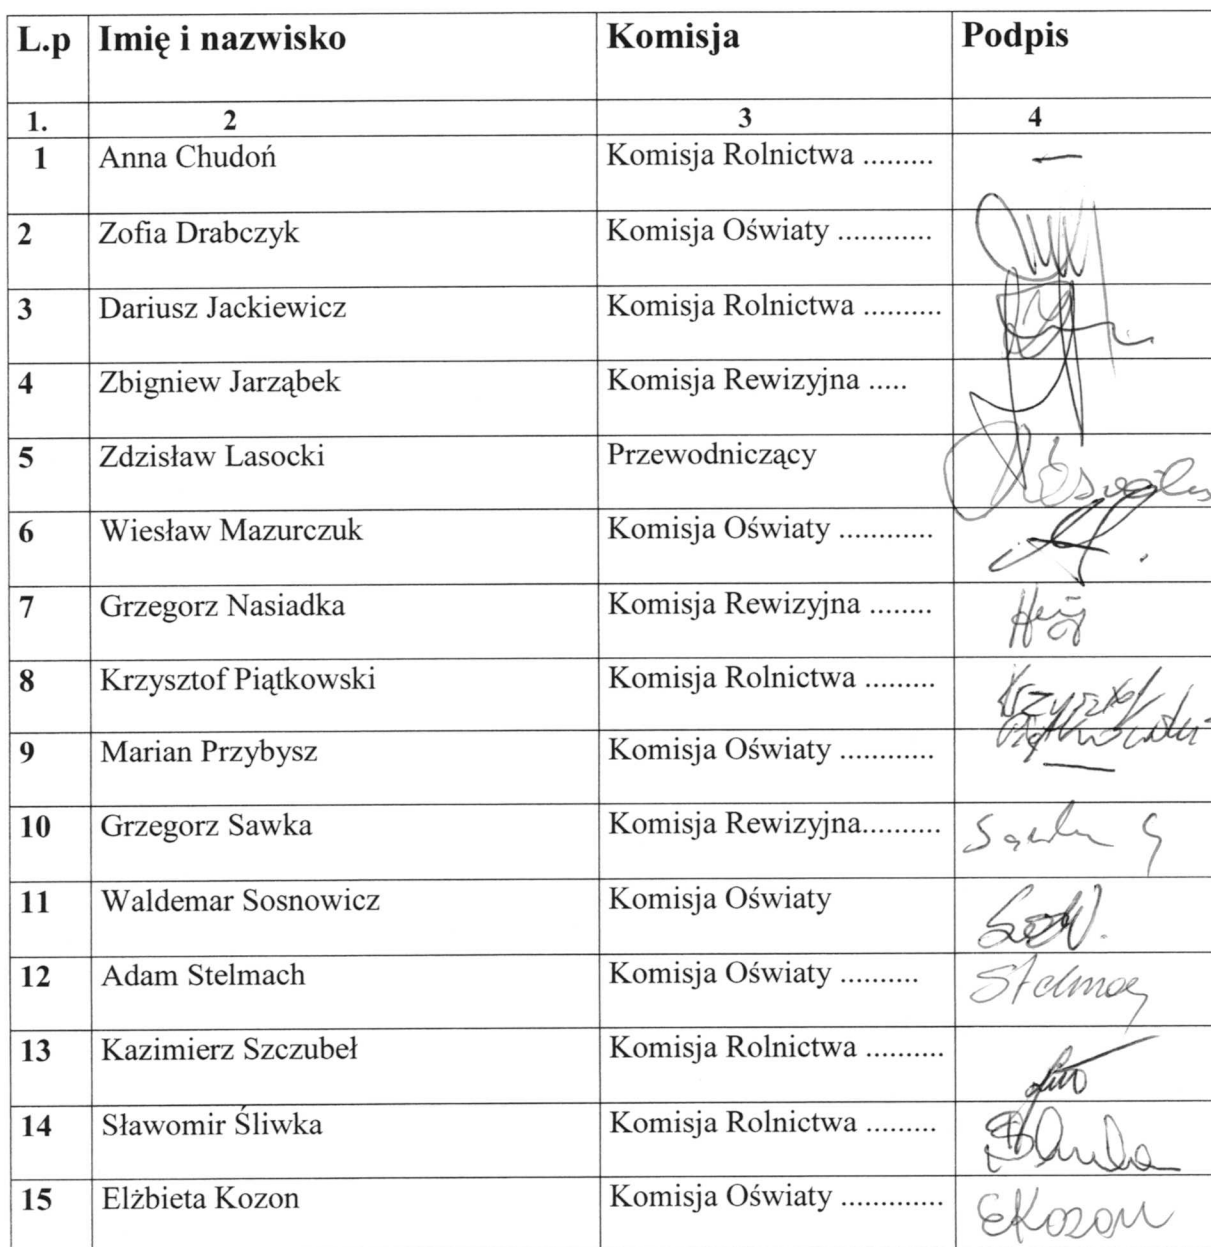 L.p Imię i nazwisko Komisja Podpis
1. 2 3 4
1 Anna Chudoń Komisja Rolnictwa ......... —
2 Zofia Drabczyk Komisja Oświaty ............
3 Dariusz Jackiewicz Komisja Rolnictwa ..........
4 Zbigniew Jarząbek Komisja Rewizyjna .....
5 Zdzisław Lasocki Przewodniczący
6 Wiesław Mazurczuk Komisja Oświaty ............
7 Grzegorz Nasiadka Komisja Rewizyjna ........
8 Krzysztof Piątkowski Komisja Rolnictwa ......... Krzysztof
Piątkowski
9 Marian Przybysz Komisja Oświaty ............ —
10 Grzegorz Sawka Komisja Rewizyjna..........
11 Waldemar Sosnowicz Komisja Oświaty
12 Adam Stelmach Komisja Oświaty ..........
13 Kazimierz Szczubeł Komisja Rolnictwa ..........
14 Sławomir Śliwka Komisja Rolnictwa .........
15 Elżbieta Kozon Komisja Oświaty ............. EKozon